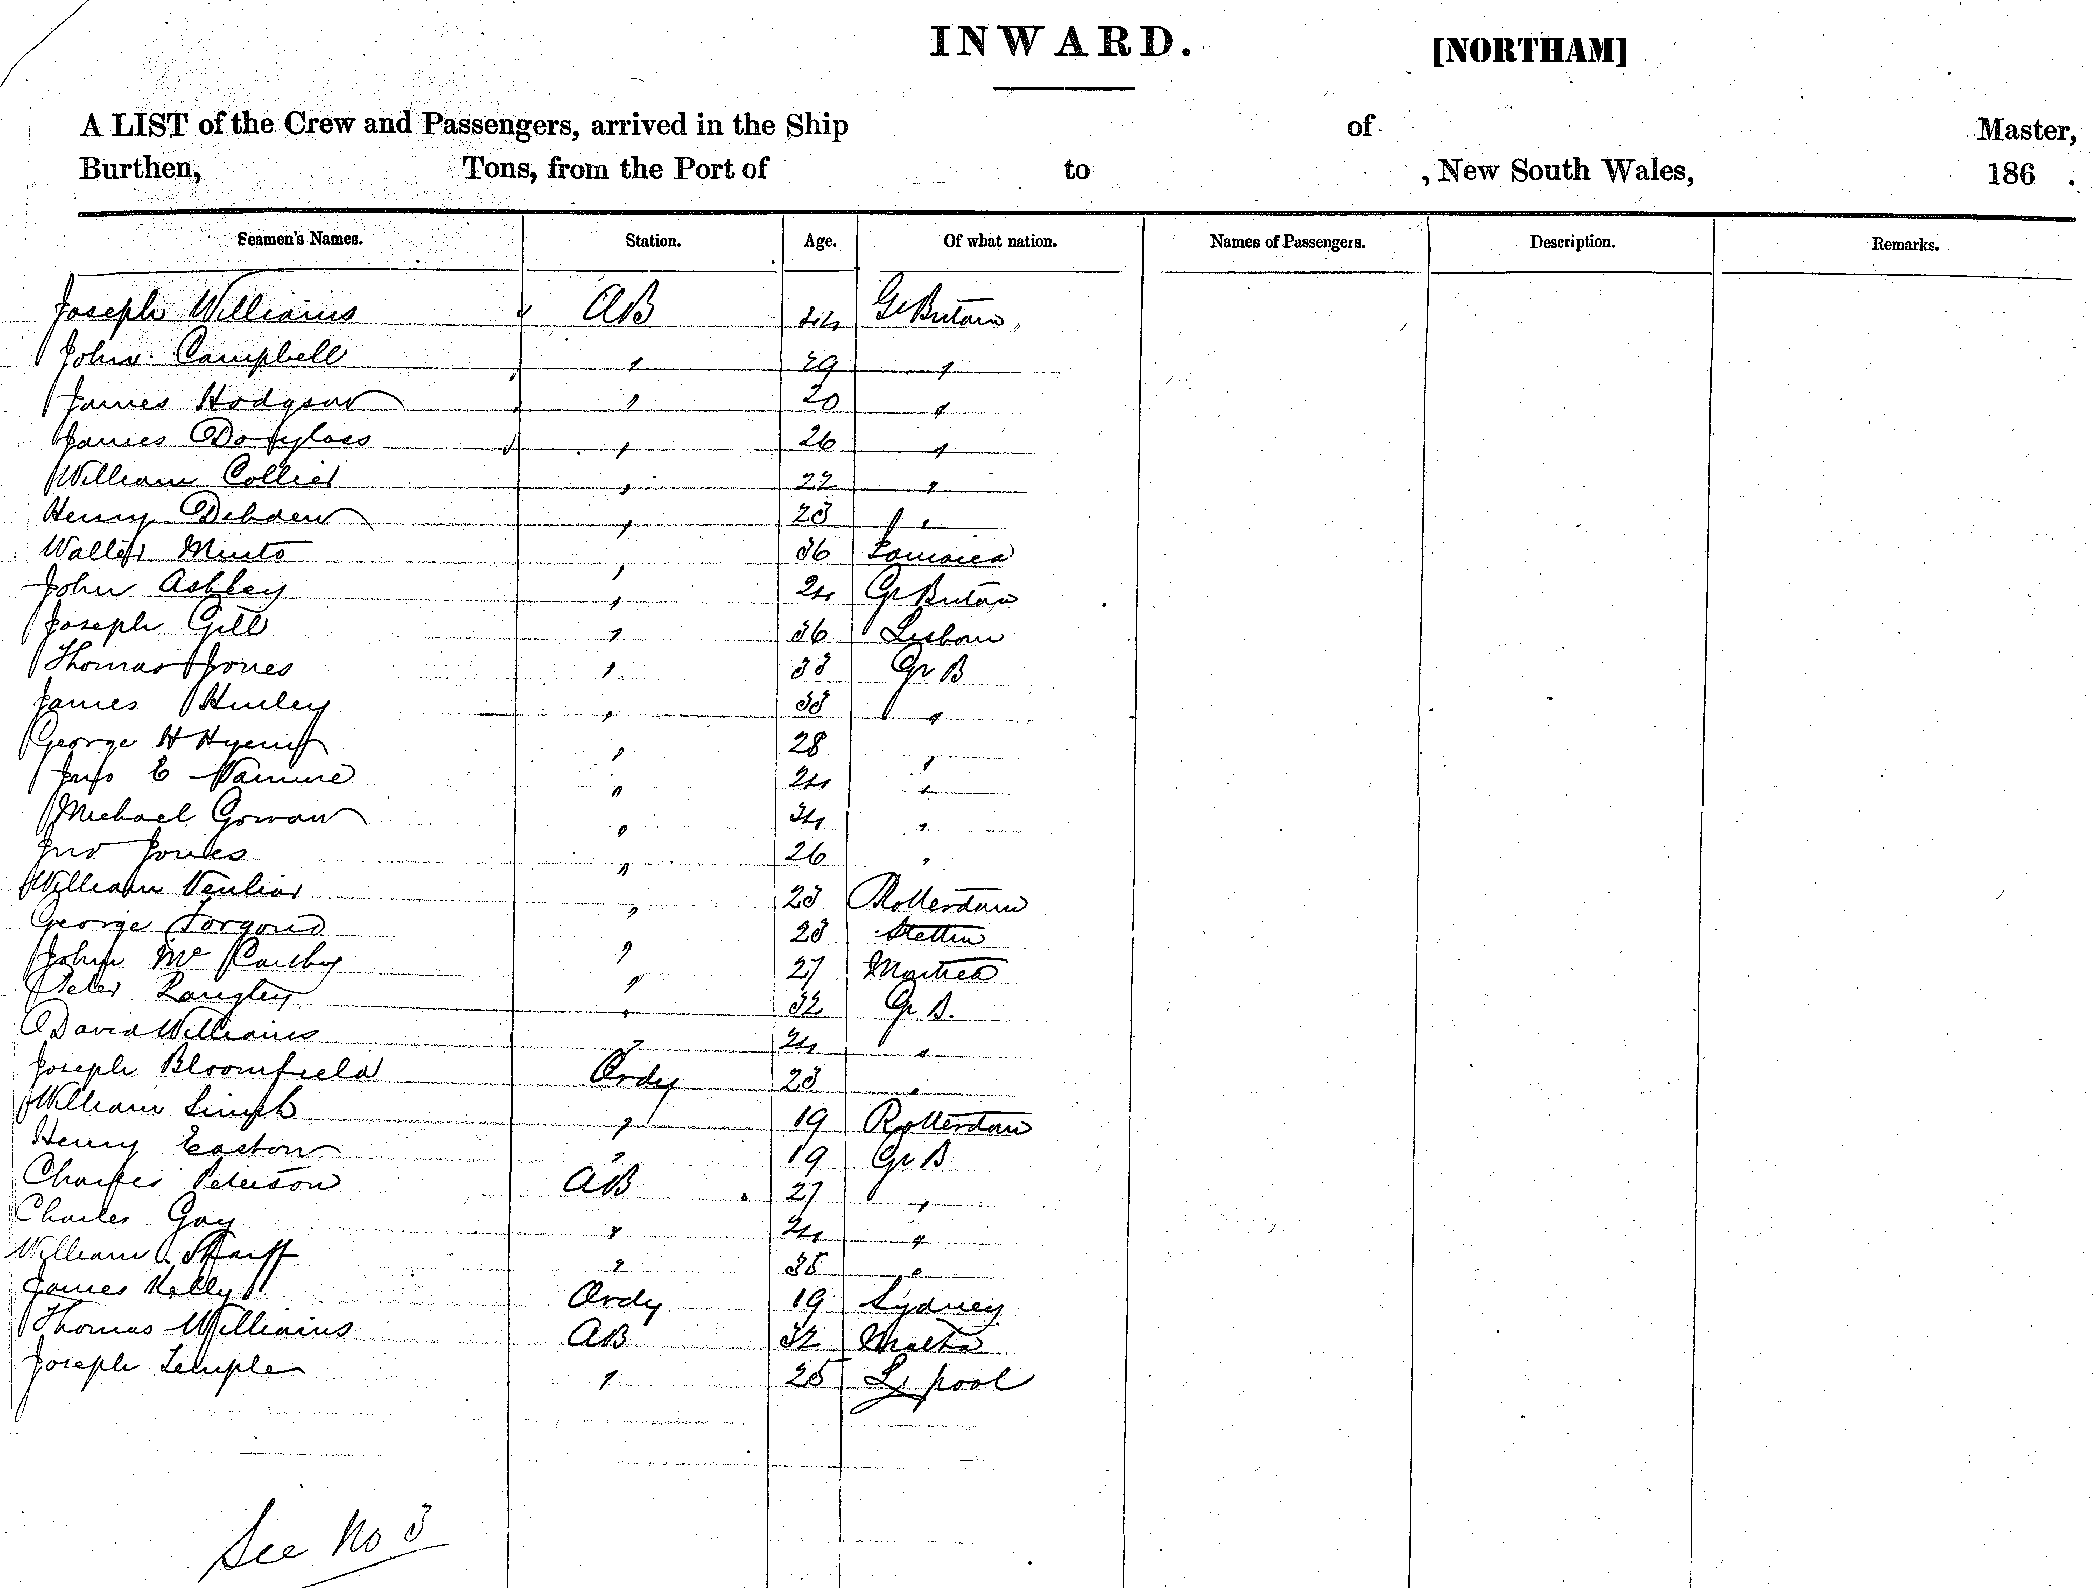 INWARD. [NORTHAM]
A LIST of the Crew and Passengers, arrived in the Ship of Master,
Burthen, Tons, from the Port of to , New South Wales, 186 .
Seamen's Names. Station. Age. Of what nation. Names of Passengers. Description. Remarks.
Joseph Williams AB 24 Gt Britain
John Campbell " 29 "
James Hodgson " 20 "
James Douglass " 26 "
William Collier " 22 "
Henry Dibden " 23 "
Walter Minto " 36 Jamaica
John Ashley " 24 Gr Britain
Joseph Gill " 36 Lisbon
Thomas Jones " 33 Gr B
James Hurley " 33 "
George H " 28 "
Jno E " 24 "
Michael Gowan " 34 "
Jno Jones " 26 "
William " 23 Rotterdam
George " 23 Stettin
John McCarthy " 27
Peter Langley " 32 Gr B.
David Williams " 24 "
Joseph Bloomfield Ordy 23 "
William " 19 Rotterdam
Henry Easton " 19 Gr B
Charles Peterson AB 27 "
Charles Gay " 24 "
William " 35 "
James Kelly Ordy 19 Sydney
Thomas Williams AB 32 Malta
Joseph Temple " 25 L'pool
See No 3